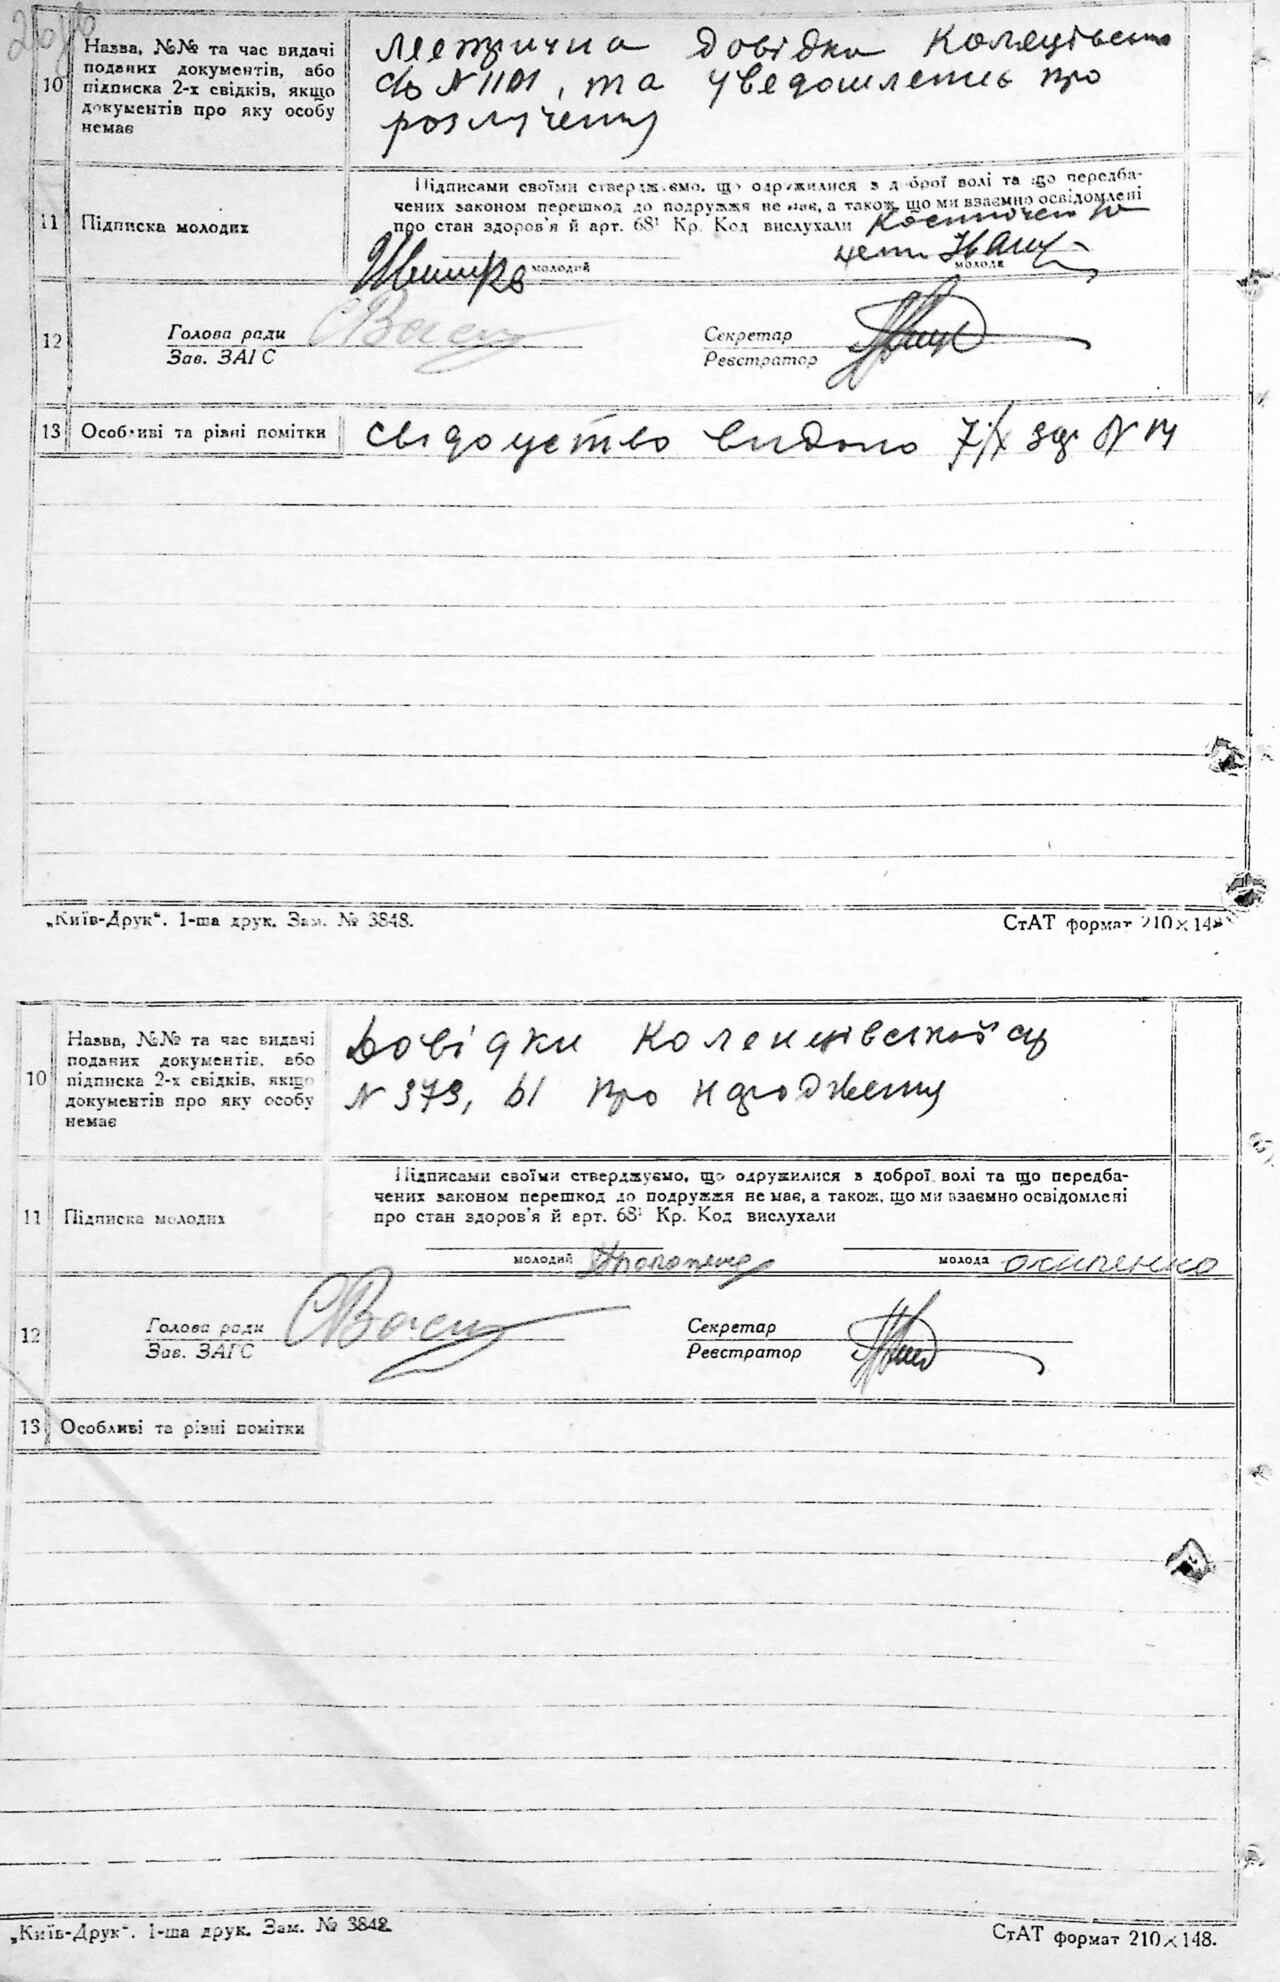 10 Назва, №№ та час видачі
поданих документів, або
підписка 2-х свідків, якщо
документів про яку особу
немає
Метрична довідка
№ 1101, та уведомлення про
розлучення
11 Підписка молодих
Підписами своїми стверджуємо, що одружилися з доброї волі та що передба-
чених законом перешкод до подружжя не має, а також, що ми взаємно освідомлені
про стан здоров'я й арт. 68¹ Кр. Код вислухали
молодий
молода
12 Голова ради
Зав. ЗАГС
Секретар
Реєстратор
13 Особливі та різні помітки
свідоцтво видано 7/X за № 14
„Київ-Друк“. 1-ша друк. Зам. № 3848.
СтАТ формат 210×148
10 Назва, №№ та час видачі
поданих документів, або
підписка 2-х свідків, якщо
документів про яку особу
немає
Довідки Коленцівської с/р
№ 379, 61 про народження
11 Підписка молодих
Підписами своїми стверджуємо, що одружилися з доброї волі та що передба-
чених законом перешкод до подружжя не має, а також, що ми взаємно освідомлені
про стан здоров'я й арт. 68¹ Кр. Код вислухали
молодий
молода Осипенко
12 Голова ради
Зав. ЗАГС
Секретар
Реєстратор
13 Особливі та різні помітки
„Київ-Друк“. 1-ша друк. Зам. № 3848.
СтАТ формат 210×148.